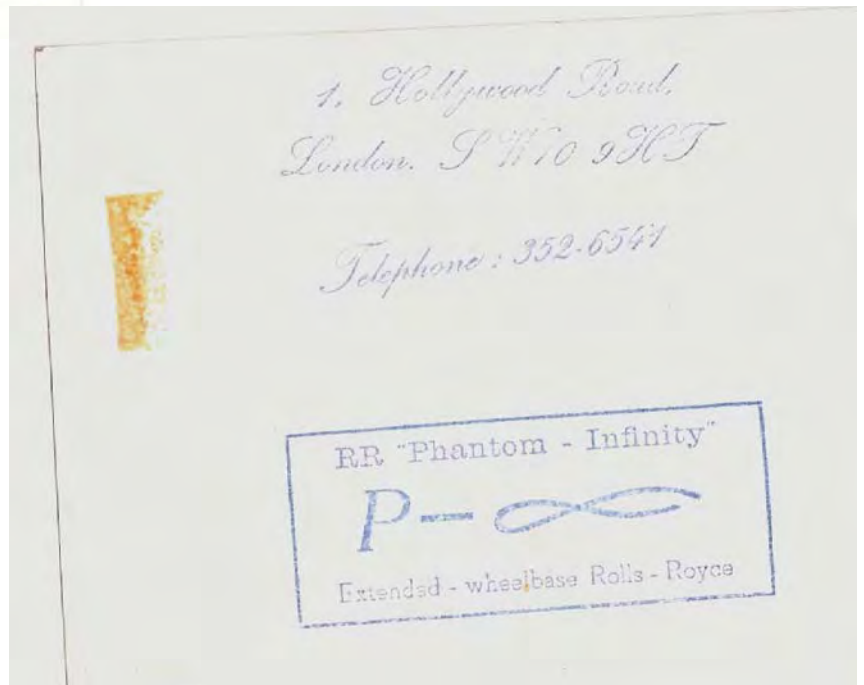 1, Hollywood Road,
London. S W 10 9HT
Telephone : 352-6541
RR "Phantom - Infinity"
P-∞
Extended - wheelbase Rolls - Royce